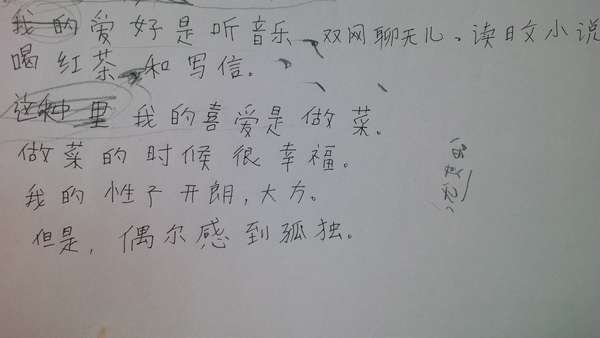 我的爱好是听音乐、双网聊天儿、读日文小说
喝红茶、和写信。
这种里 我的喜爱是做菜。
做菜的时候很幸福。
我的性子开朗,大方。
但是,偶尔感到孤独。